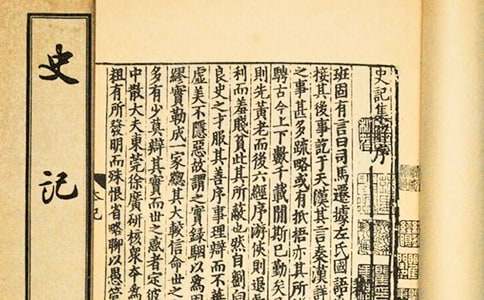 史記集解序
班固有言曰司馬遷據左氏國語
接其後事訖于天漢其言秦漢詳
之事甚多疏略或有抵捂亦其所
騁古今上下數千載間斯已勤矣
則先黃老而後六經序游俠則退處
利而羞賤貧此其所蔽也然自劉向
良史之才服其善序事理辯而不華
虛美不隱惡故謂之實錄駰以為固
繆實勒成一家總其大較信命世之
多有少莫辯其實而世之惑者定彼
中散大夫東莞徐廣研核衆本為
粗有所發明而殊恨省略聊以愚管
史記